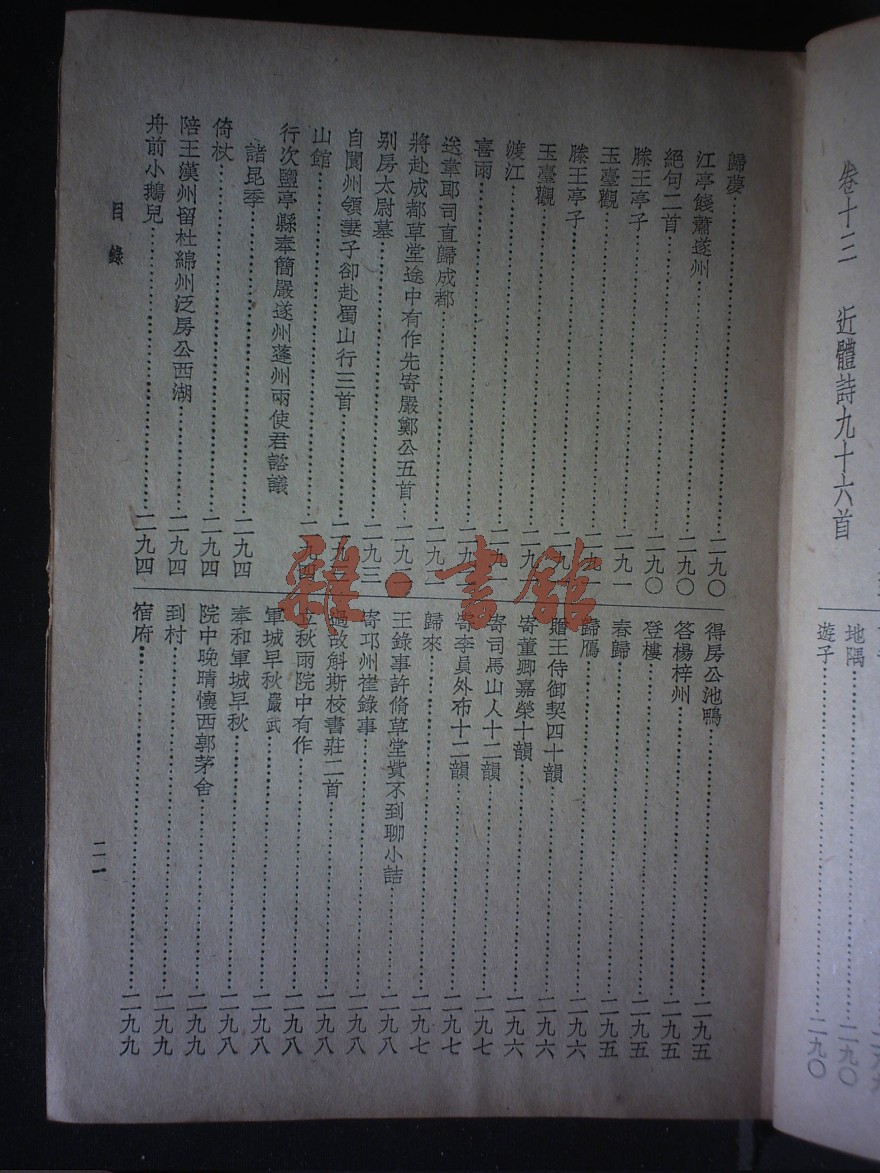 卷十三　近體詩九十六首
地隅……二九〇
遊子……二九〇
歸夢……二九〇
江亭餞蕭遂州……二九〇
絕句二首……二九〇
滕王亭子……二九一
玉臺觀……二九一
滕王亭子
玉臺觀
渡江
喜雨
送韋郎司直歸成都……二九二
將赴成都草堂途中有作先寄嚴鄭公五首
別房太尉墓……二九三
自閬州領妻子卻赴蜀山行三首
山館
行次鹽亭縣奉簡嚴遂州蓬州兩使君諮議
諸昆季……二九四
倚杖……二九四
陪王漢州留杜綿州泛房公西湖……二九四
舟前小鵝兒……二九四
得房公池鴨……二九五
答楊梓州……二九五
登樓……二九五
春歸……二九五
歸鴈……二九六
贈王侍御契四十韻……二九六
寄董卿嘉榮十韻……二九六
寄司馬山人十二韻……二九七
寄李員外布十二韻……二九七
歸來……二九七
王錄事許脩草堂貲不到聊小詰……二九八
寄邛州崔錄事……二九八
過故斛斯校書莊二首……二九八
立秋雨院中有作……二九八
軍城早秋嚴武……二九八
奉和軍城早秋……二九八
院中晚晴懷西郭茅舍……二九九
到村……二九九
宿府……二九九
目錄
二一
雜·書館